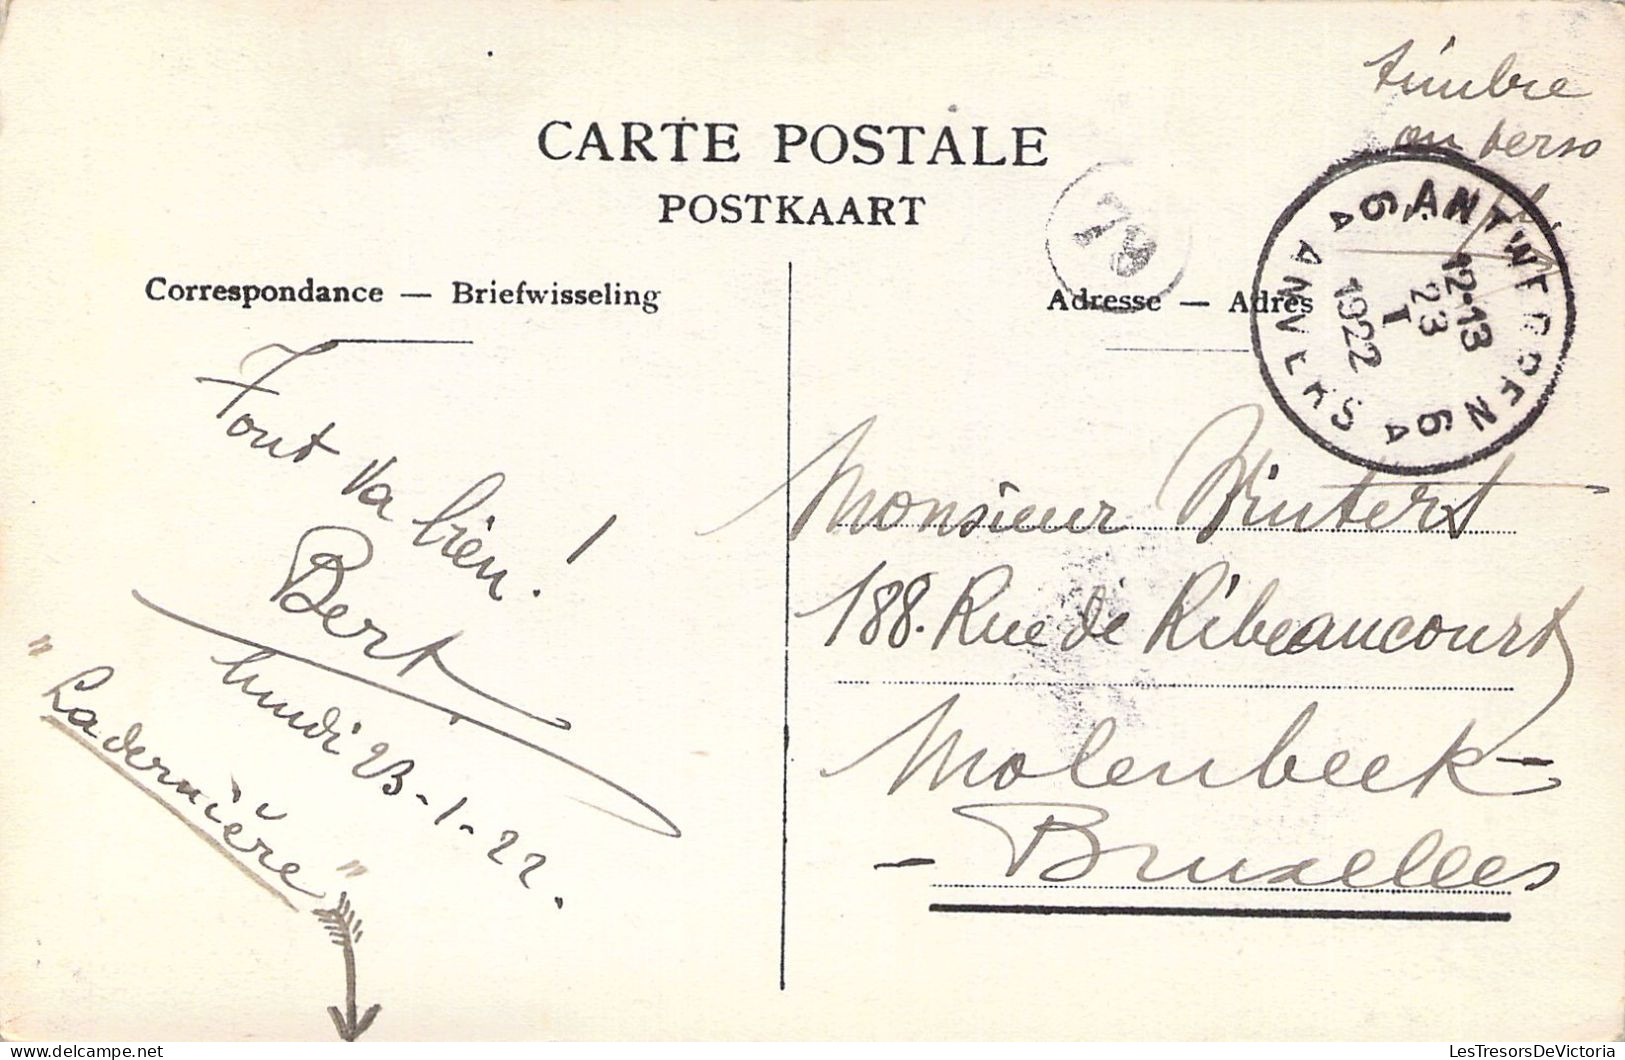 timbre
au verso
CARTE POSTALE
POSTKAART
Correspondance — Briefwisseling
Adresse — Adres
ANTWERPEN
6A 6A
12-13
23
I
1922
ANVERS
Tout va bien!
Bert
lundi 23-1-22.
"La dernière"
Monsieur Winters
188. Rue de Ribeaucourt
Molenbeek-
- Bruxelles
LesTresorsDeVictoria